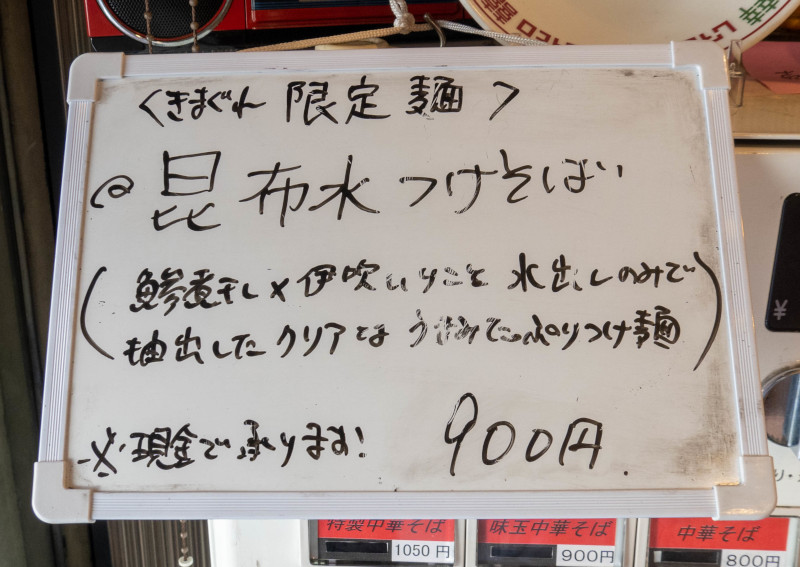 〈きまぐれ 限定麺〉
@昆布水つけそば
(鯵煮干し×伊吹いりこを水出しのみで
抽出したクリアなうまみたっぷりつけ麺)
※現金で承ります! 900円.
¥
特製中華そば 味玉中華そば 中華そば
1050円 900円 800円